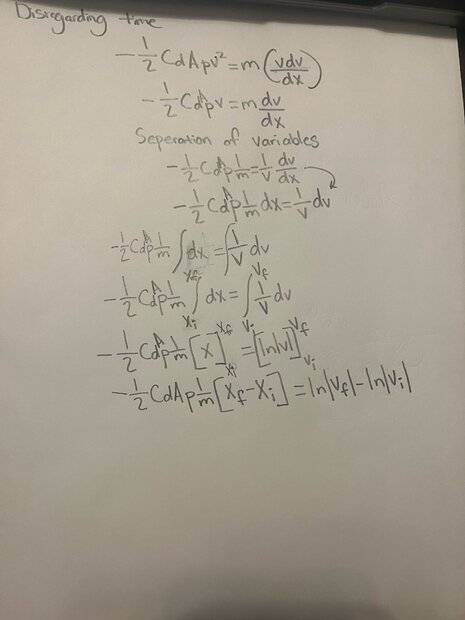 Disregarding time
-1/2 CdApv² = m(vdv/dx)
-1/2 CdApv = m dv/dx
Seperation of variables
-1/2 CdAp 1/m = 1/v dv/dx
-1/2 CdAp 1/m dx = 1/v dv
-1/2 CdAp 1/m ∫dx = ∫1/v dv
-1/2 CdAp 1/m ∫_{xi}^{xf} dx = ∫_{vi}^{vf} 1/v dv
-1/2 CdAp 1/m [x]_{xi}^{xf} = [ln|v|]_{vi}^{vf}
-1/2 CdAp 1/m [xf-xi] = ln|vf|-ln|vi|